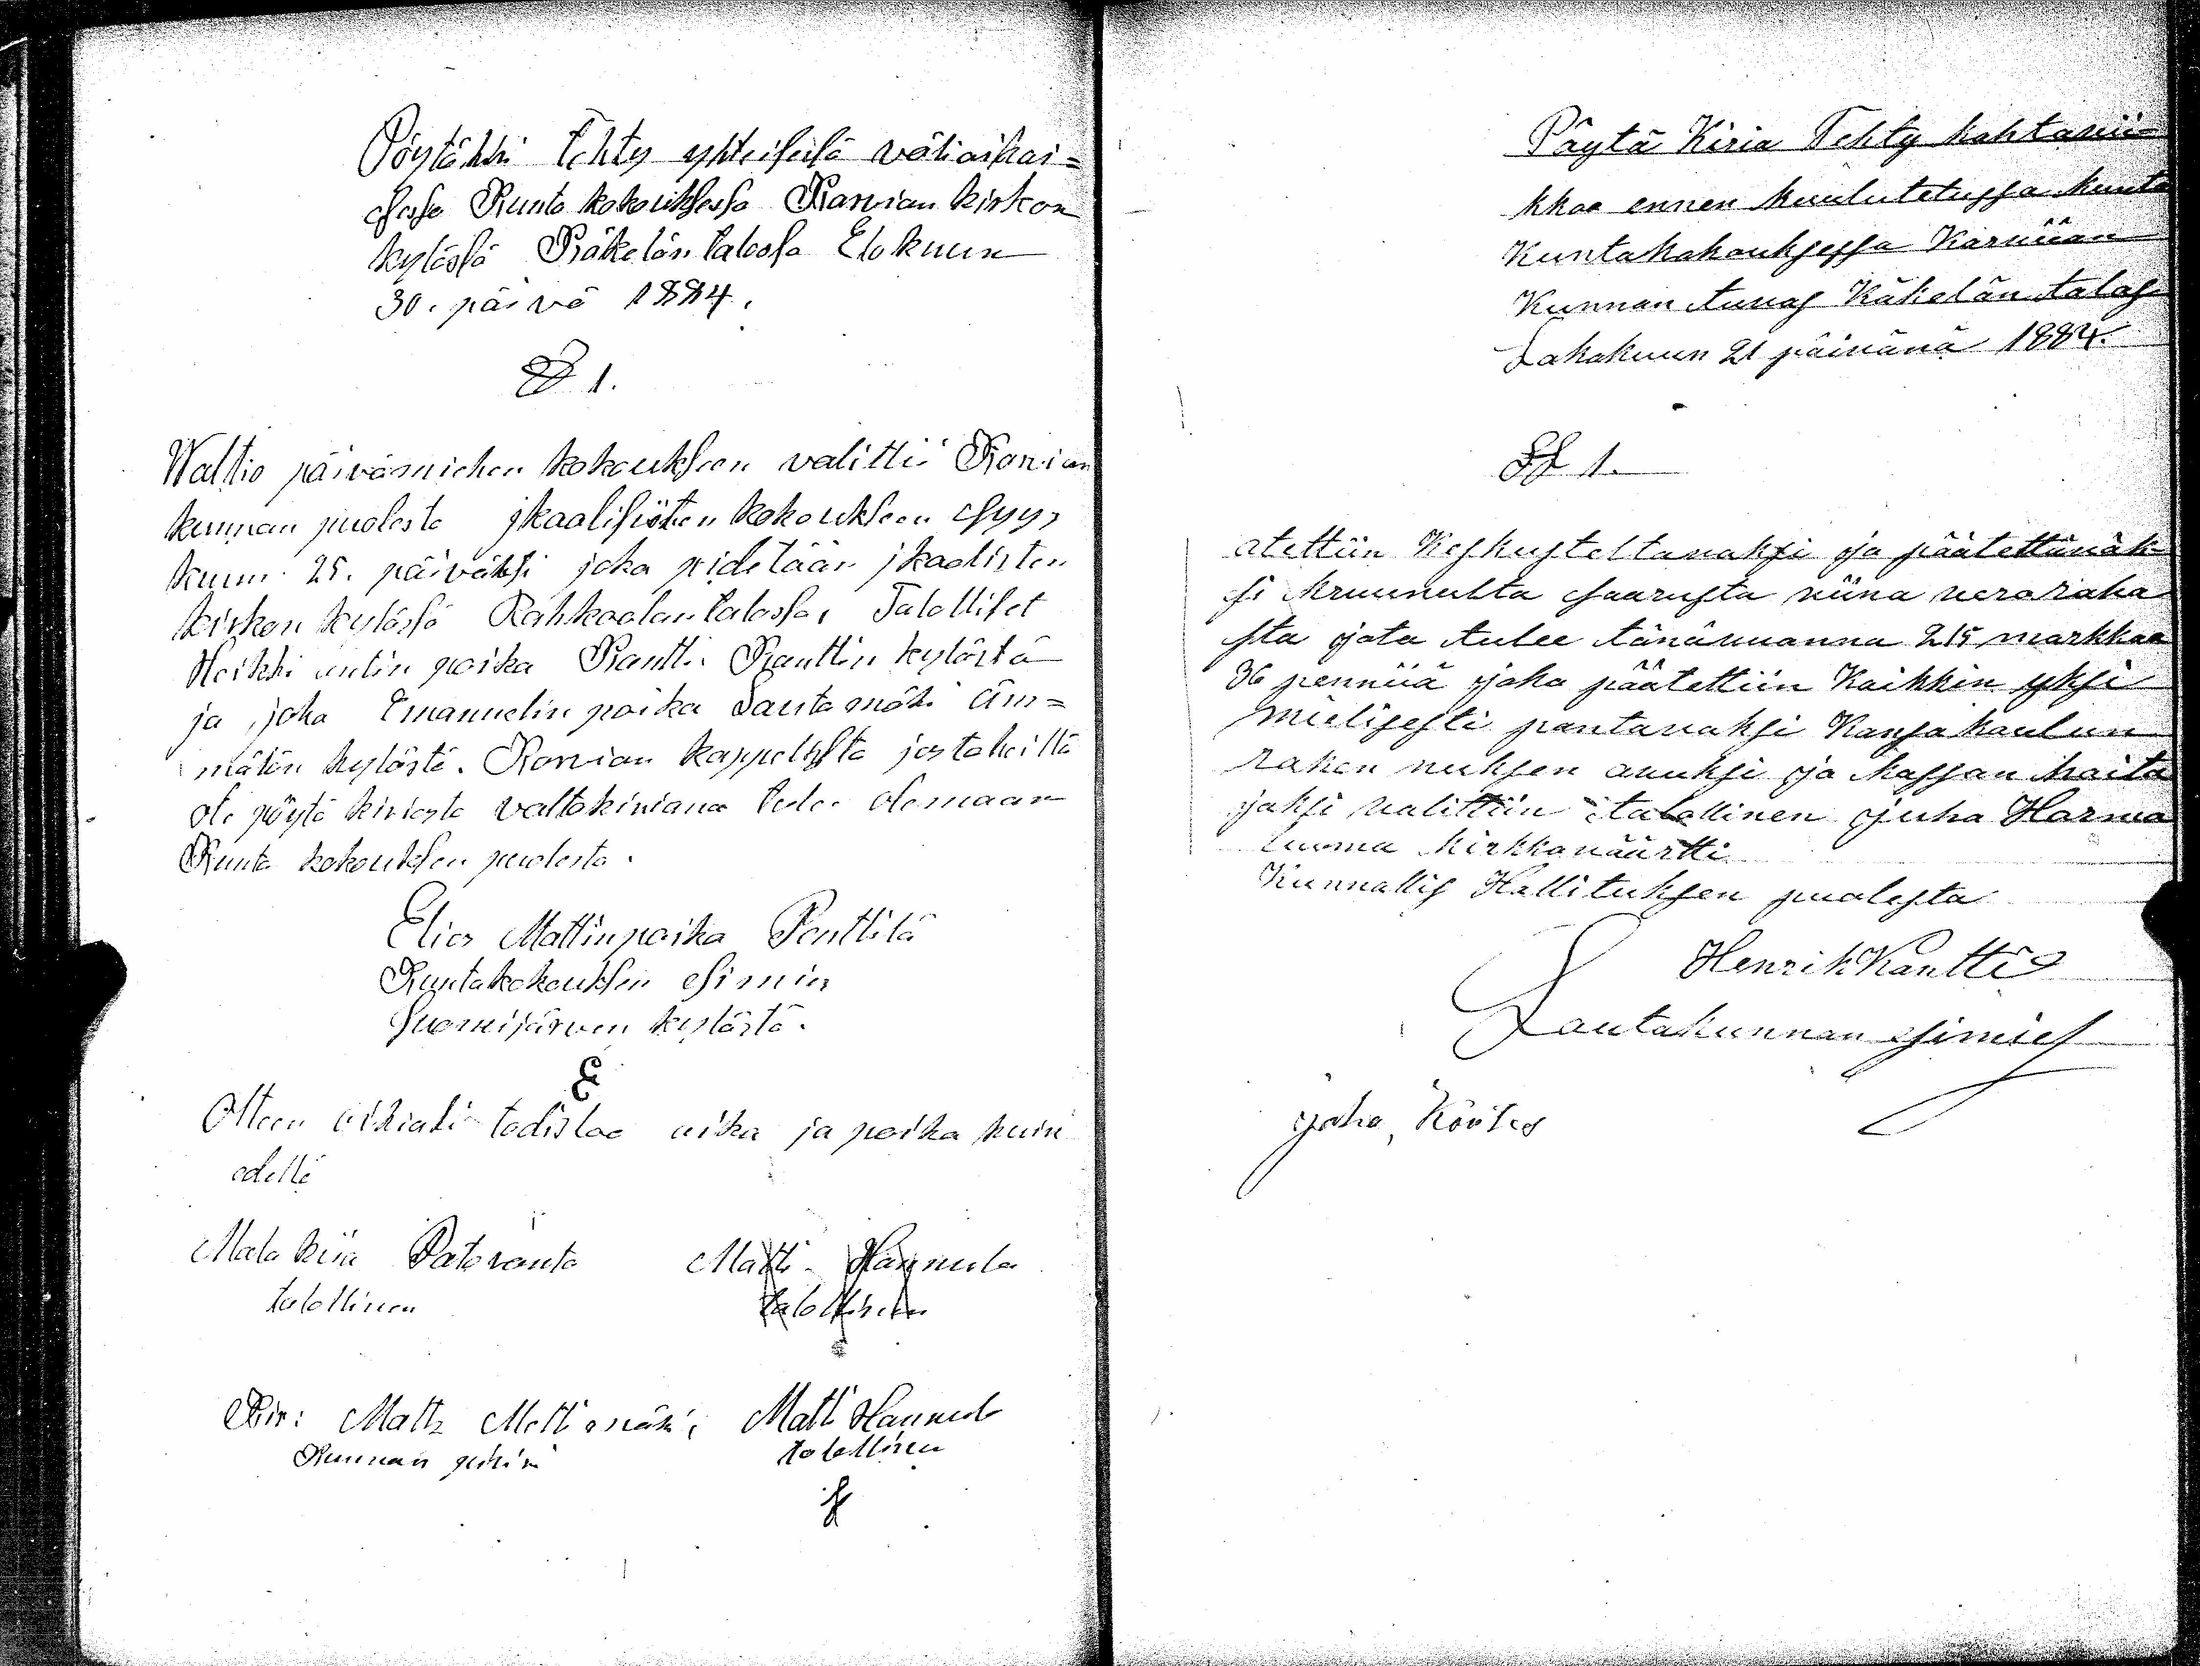 Pöytäkki Tehty yhteisesä väliaikai=
sessa Kunta kokouksessa Karvian kirkon
kylässä Käkelän talossa Elokuun
30. päivä 1884.
§ 1.
Waltio päivämiehen kokoukseen valittii Karvian
kunnan puolesta jkaalisiöten kokoukseen Syys
kuun 25. päiväksi joka pidetään jkaalisten
kirkon kylässä Rahkoalan talossa, Talolliset
Heikki antin poika Kantti Kanttin kylästä
ja joha Emanuelin poika Santamäki Äm=
mälän kylästä. Karvian kappelista josta heillä
ote pöytä kiriasta valtakiriana tulee olemaan
Kunta kokouksen puolesta.
Elias Mattinpoika Penttilä
Kuntakokouksen esimies
Suomijärven kylästä.
Otteen oikiaksi todistaa aika ja paika kuin
edellä
Malakia Patoranta Matti Hannula
talollinen talollinen
Kir: Matts Mattsmäki, Matti Hannula
Kunnan talollinen
Päytä Kiria Tehty kahtavii
kkoa ennen kuulutetussa kunta
Kuntakokouksessa Karviian
Kunnan tuvas Käkelän talos
Lokakuun 21 päivänä 1884.
§§ 1.
atettiin Keskusteltavaksi ja päätettäväk
si kruunulta saarusta viina veroraha
sta jota tulee tänävuonna 215 markkaa
36 penniiä joka päätettiin Kaikkin yksi
mielisesti pantavaksi Kansakoulun
raken nuksen avuksi ja kassan hoita
jaksi valittiin talollinen juha Harma
luoma kirkkonäärtti
Kunnallis Hallituksen puolesta
Henrik Kantti
Lautakunnan esimies
joha,